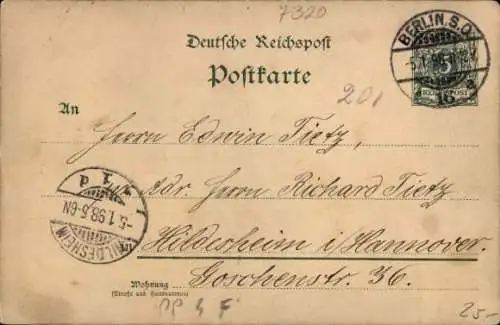 7320
Deutsche Reichspost
Postkarte
BERLIN S.O.
5.1.98
16
5
REICHSPOST
201
An
Herrn Edwin Tietz,
Adr. Herrn Richard Tietz
Hildesheim i/Hannover.
Goschenstr. 36.
HILDESHEIM
-5.1.98.5-6N
Wohnung
(Straße und Hausnummer)
25.-